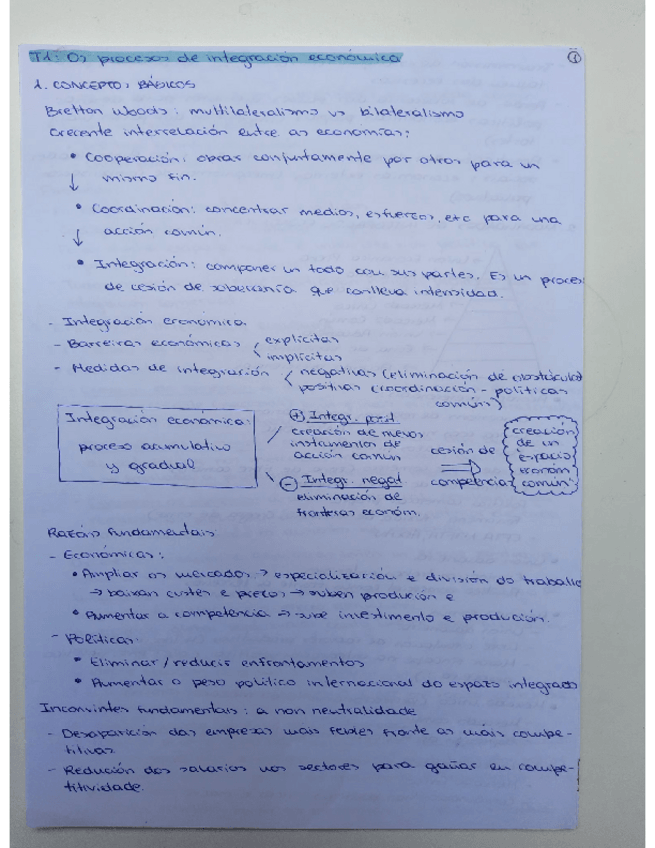 T1: Os procesos de integración económica
1
1. CONCEPTOS BÁSICOS
Bretton Woods: multilateralismo vs bilateralismo
Crecente interrelación entre as economías:
• Cooperación: obrar conjuntamente por otros para un
mismo fin.
↓
• Coordinación: concentrar medios, esfuerzos, etc para una
acción común.
↓
• Integración: componer un todo con sus partes. Es un proces
de cesión de soberanía que conlleva intensidad.
- Integración económica
- Barreiras económicas explícitas
implícitas
- Medidas de integración negativas (eliminación de obstáculos)
positivas (coordinación - políticas
común)
Integración económica:
proceso acumulativo
y gradual
+ Integr. posit
creación de nuevos
instrumentos de
acción común
- Integr. negat
eliminación de
fronteras económ.
cesión de
⇒
competencias
creación
de un
espacio
económ
común
Razóns fundamentais:
- Económicas:
• Ampliar os mercados → especialización e división do traballo
→ baixan custes e prezos → suben produción e
• Aumentar a competencia → sube investimento e produción.
- Políticas:
• Eliminar / reducir enfrontamentos
• Aumentar o peso político internacional do espazo integrado
Inconvintes fundamentais: a non neutralidade
- Desaparición das empresas mais febles fronte as mais compe-
titivas
- Redución dos salarios nos sectores para gañar en compe-
titividade.